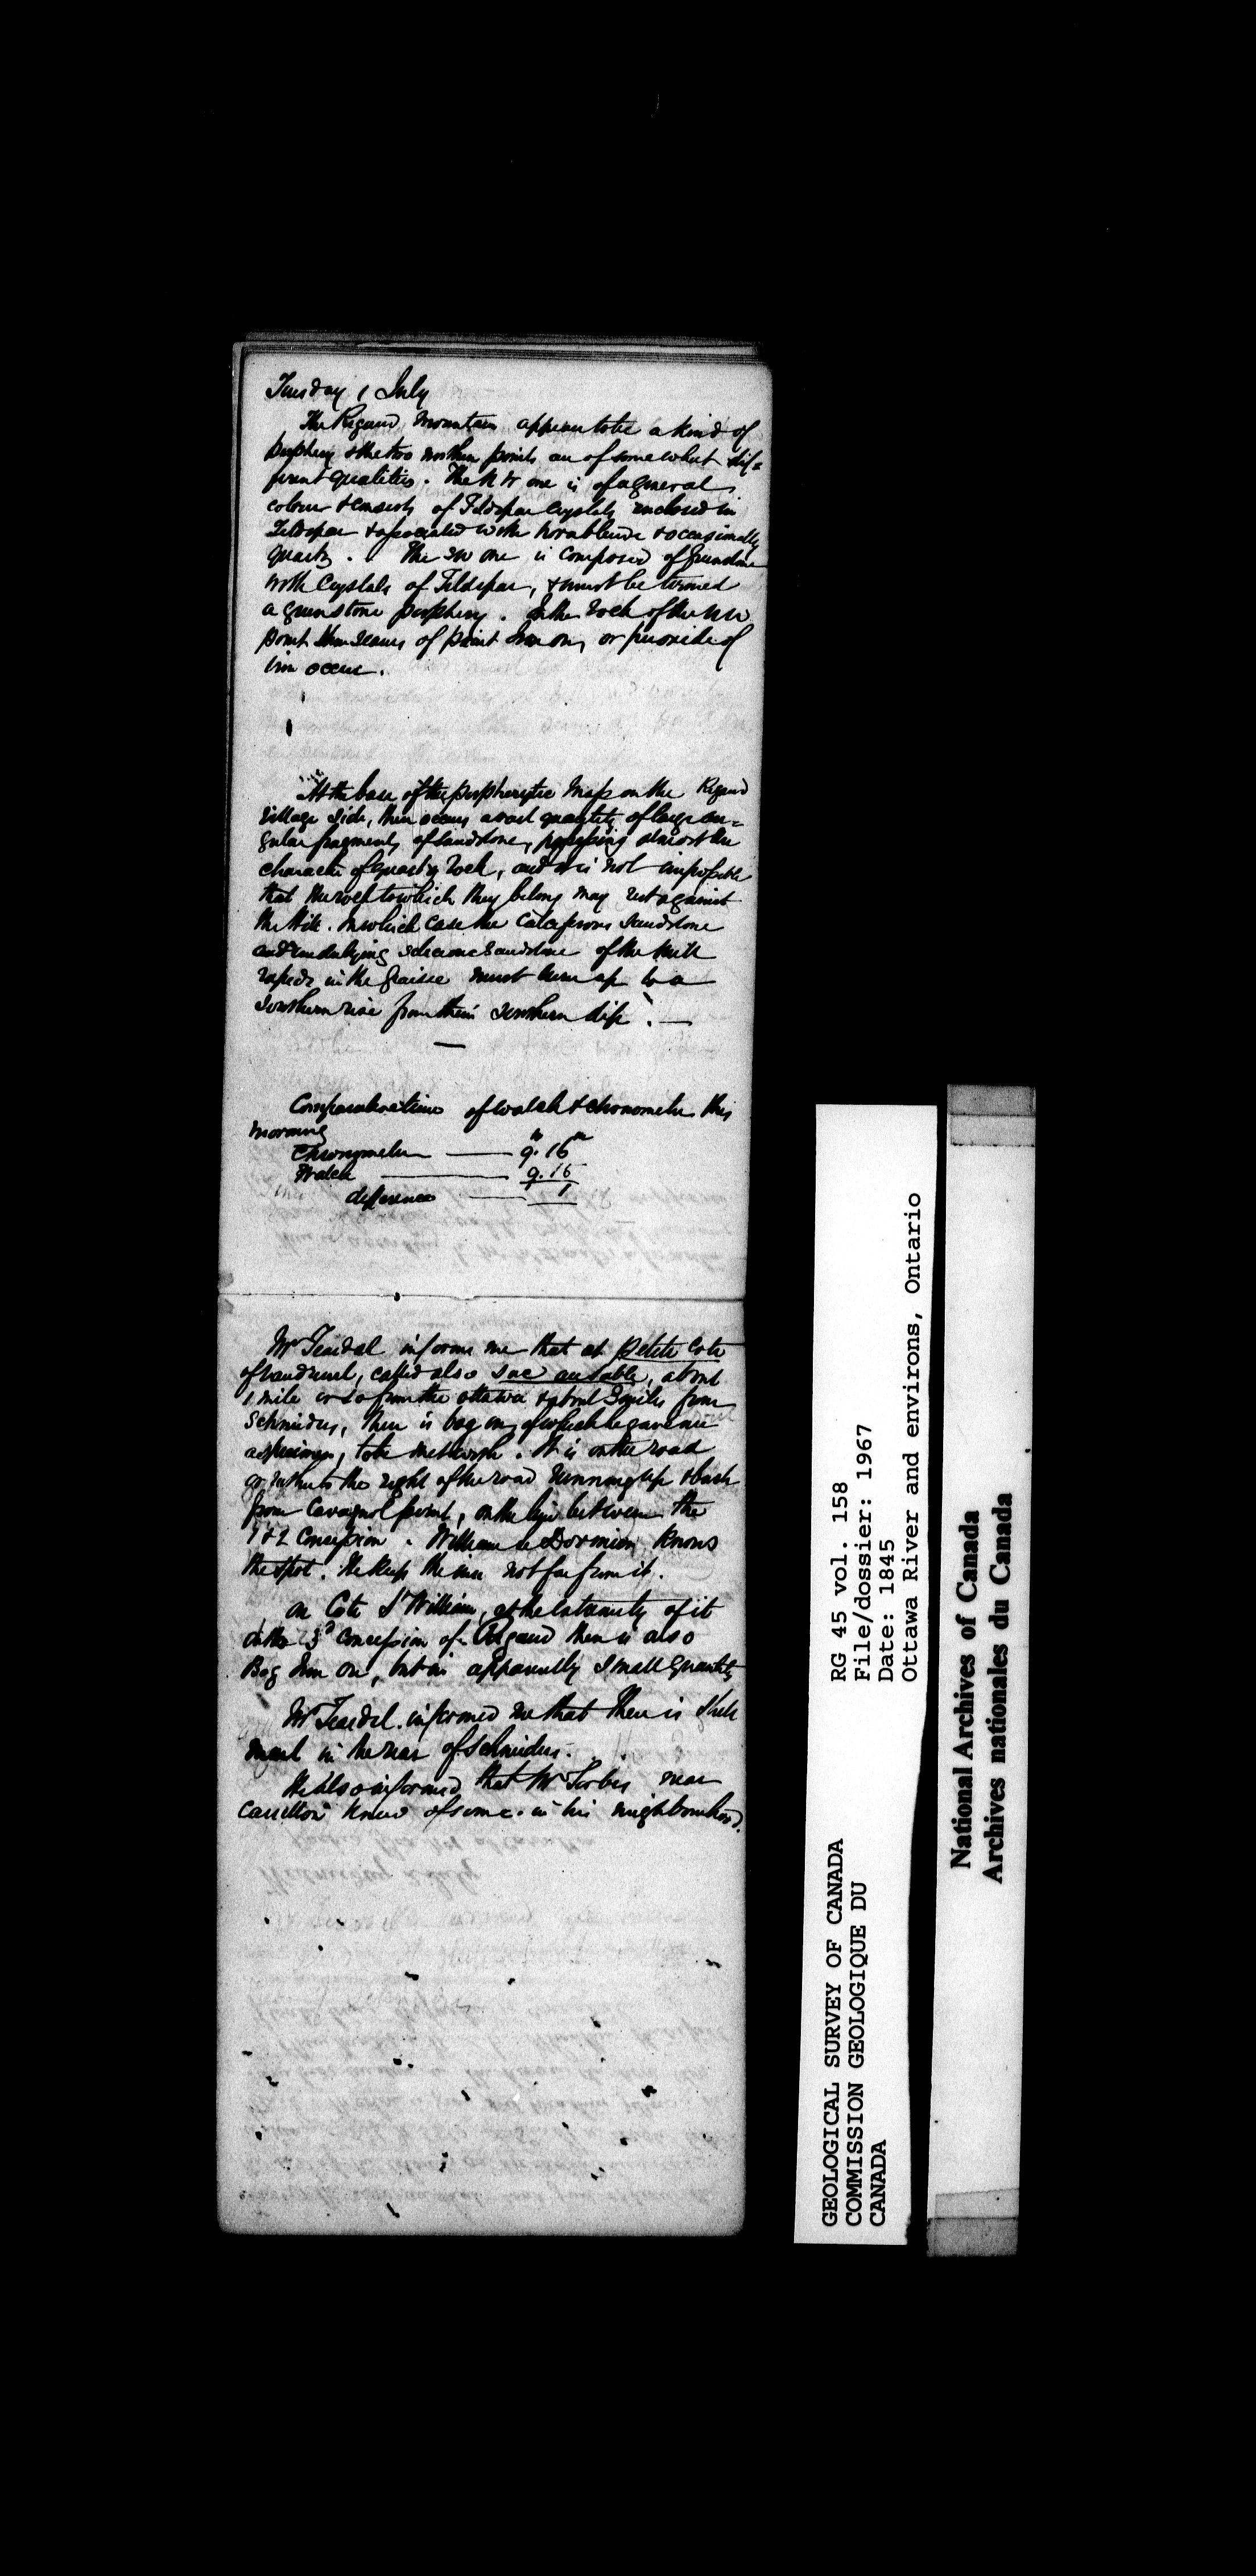 Tuesday 1 July
The Rigaud Mountain appears to be a kind of
porphyry & the two northern points are of somewhat dif=
ferent qualities. The N W one is of a general
colour & consists of Feldspar crystals enclosed in
Feldspar & associated with hornblende & occasionally
quartz. The SW one is composed of greenstone
with crystals of Feldspar, & must be termed
a greenstone porphyry. In the rock of the NW
point seams of Iron ore, or peroxide of
iron occur.
At the base of the porphyritic trap on the Rigaud
village side, there occurs a vast quantity of large an=
gular fragments of sandstone, possessing almost the
character of quartz rock, and it is not impossible
that the rock to which they belong may rest against
the Hill. In which case the calciferous sandstone
and underlying siliceous sandstone of the mill
rapids in the Graisse must turn up to a
southern rise from their southern dip. —
Comparation of watch & chronometer this
morning
Chronometer — 9.h 16m
Watch — 9. 15
difference — 1
Mr Teasdal informs me that at petite Cote
of vaudreuil, called also sac au sable, about
1 mile or so from the ottawa & about 3 miles from
Schneiders, there is bog ore, of which he gave me
a specimen, It is on the road
or rather to the right of the road running up & back
from Cavagnol point, on the line between the
1 & 2 Concession. William knows
the spot. He keeps the inn not far from it.
On Cote St William, at the extremity of it
on the 3d Concession of Rigaud there is also
Bog Iron ore, but in apparently small quantity
Mr Teasdel informed me that there is shell
marl in the rear of Schneiders.
He also informed that Mr Forbes near
Carillon knew of some in his neighbourhood.
GEOLOGICAL SURVEY OF CANADA
COMMISSION GEOLOGIQUE DU
CANADA
RG 45 vol. 158
File/dossier: 1967
Date: 1845
Ottawa River and environs, Ontario
National Archives of Canada
Archives nationales du Canada